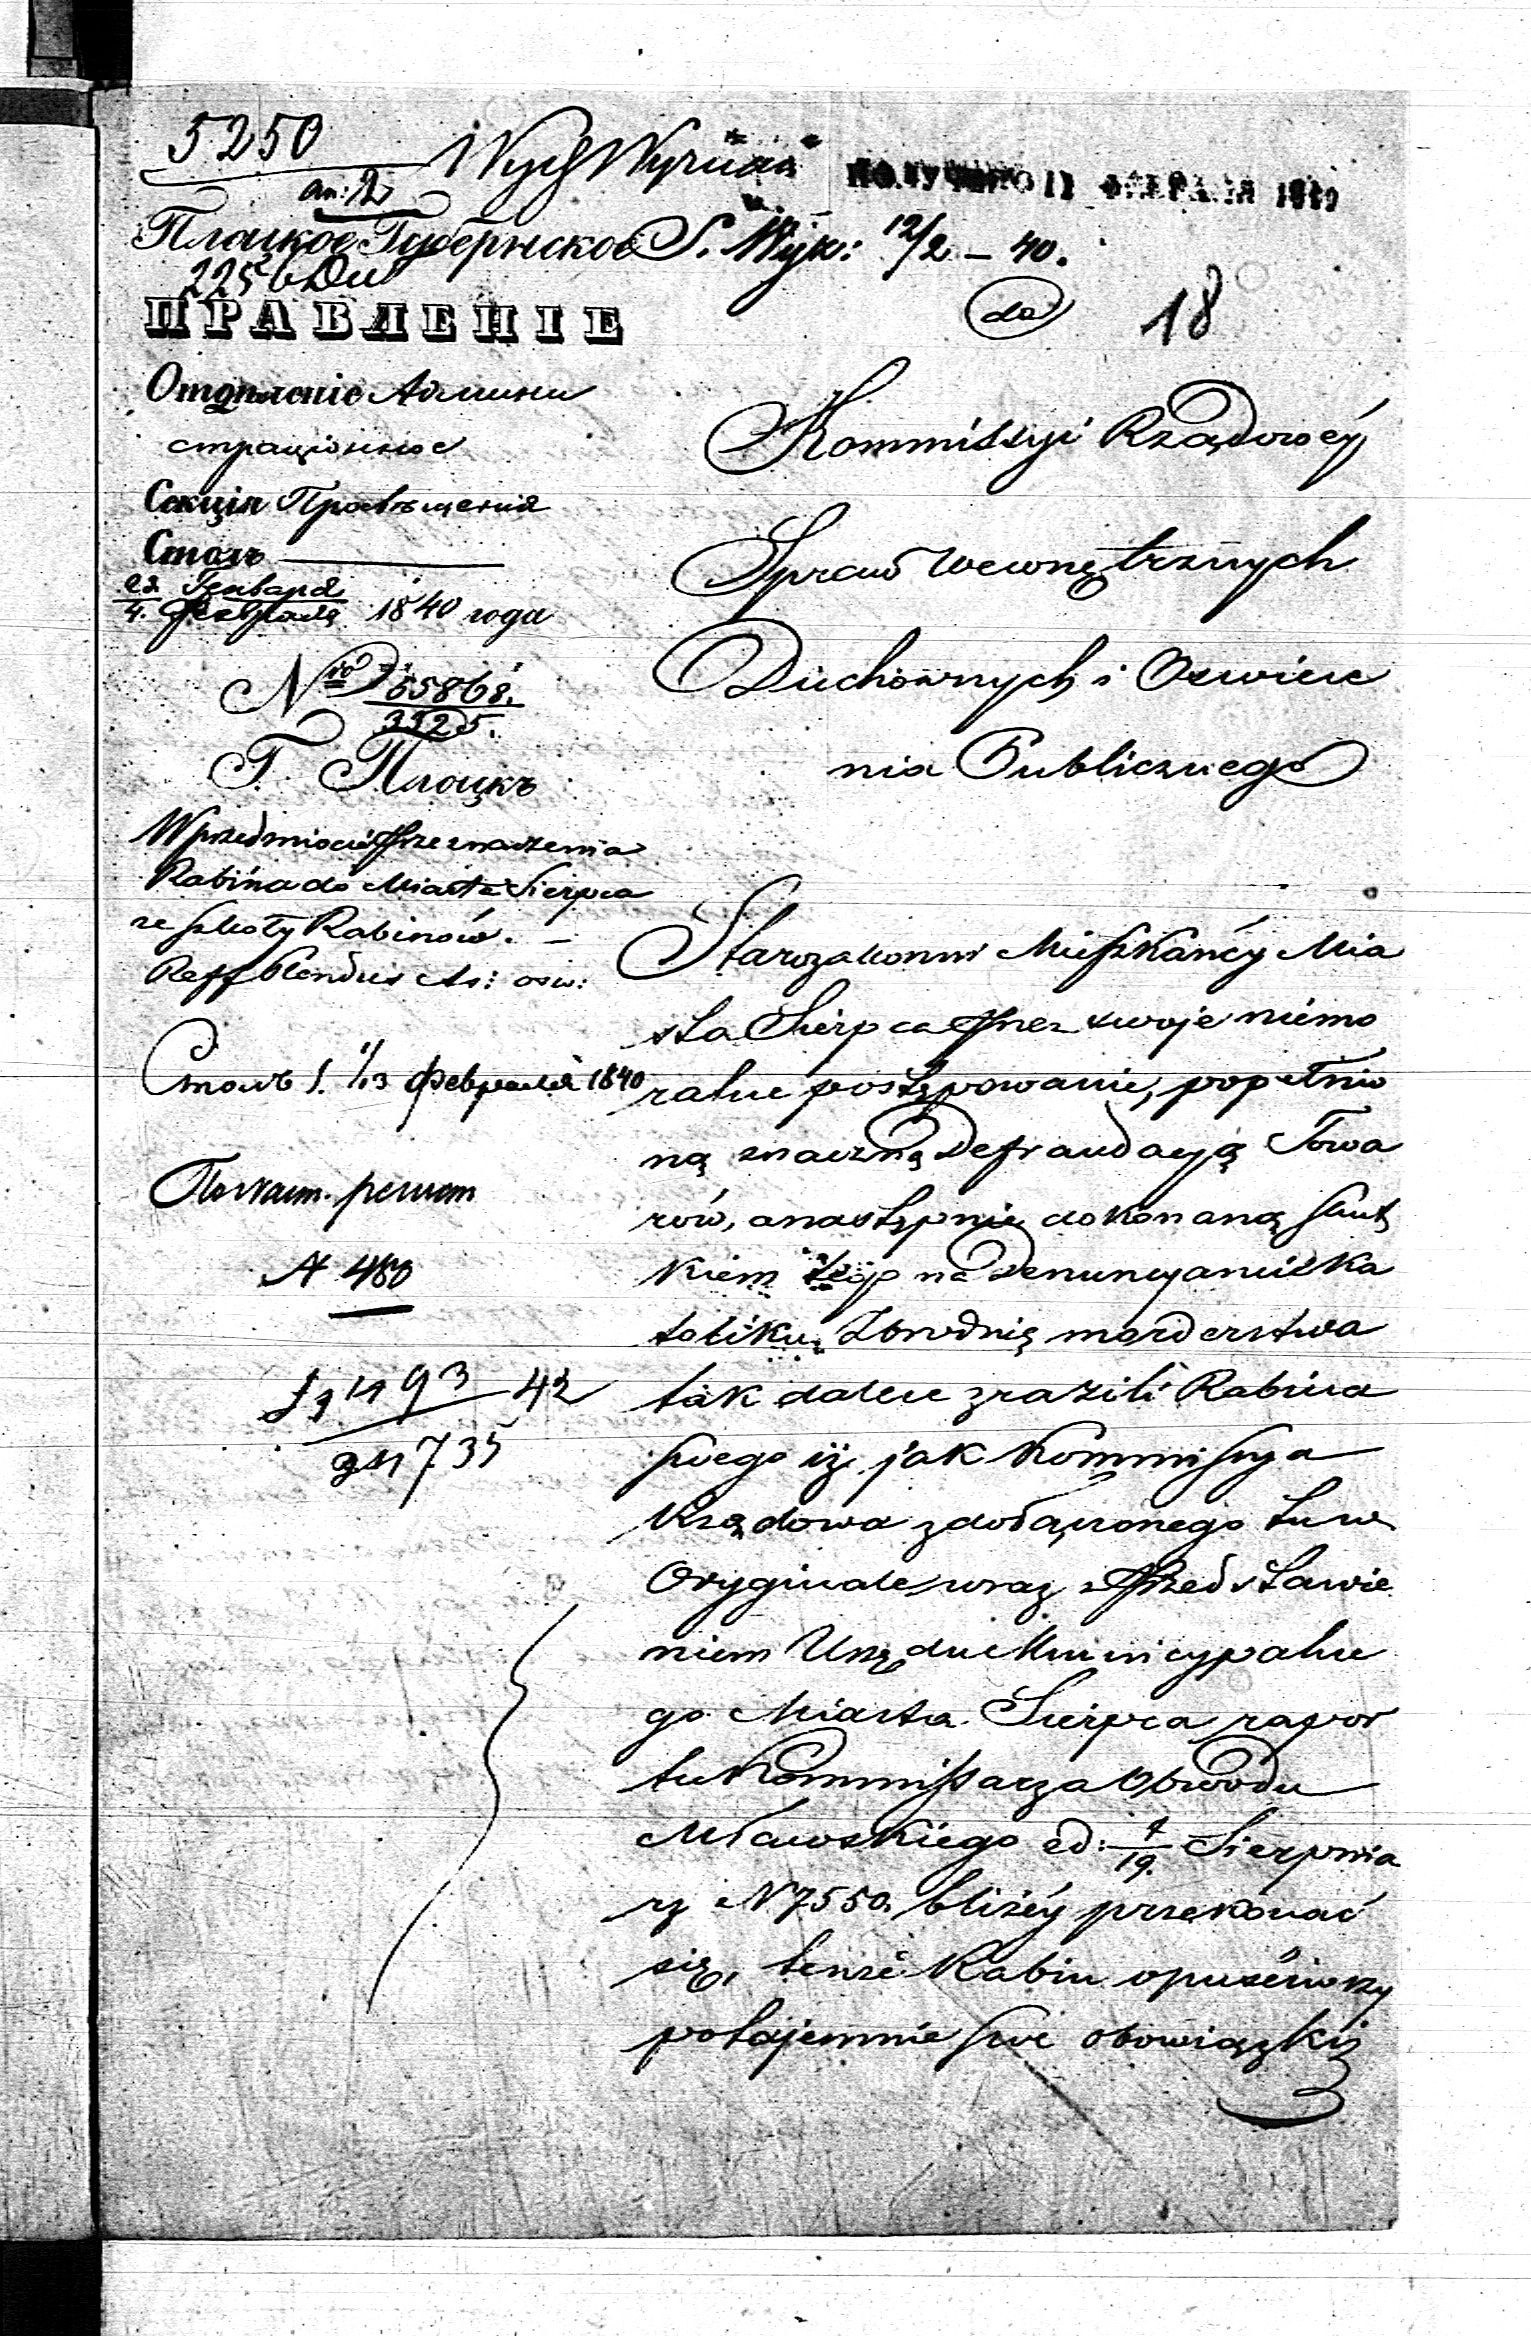 5250
an: 2
Wych Wyzna
ПОЛУЧЕНО 11 ФЕВРАЛЯ 1840
Плоцкое Губернское S. Wyk: 12/2 – 40.
225
ПРАВЛЕНІЕ
do 18
Отдѣленіе Админи
страціонное
Секція Просвѣщенія
Столъ
23 Генваря
4. Февраля 1840 года
Nro 65868.
3325.
Г. Плоцкъ
W przedmiocie Przeznaczenia
Rabina do Miasta Sierpca
ze szkoły Rabinów. –
Reff As: osw:
Столъ 1. 1/13 февраля 1840
A 480
93 42
735
Kommissyi Rządowéy
Spraw Wewnętrznych
Duchownych i Oswiece
nia Publicznego
Starozakonni Mieszkańcy Mia
sta Sierpca przez swoje niemo
ralne postępowanie, popełnio
ną znaczną Defraudacyą Towa
rów, a następnie dokonaną skut
kiem tego na Denuncyancie Ka
toliku Zbrodnią morderstwa
tak dalece zrazili Rabina
swego iż jak Kommissya
Rządowa z dołączonego tu w
Oryginale wraz z Przedstawie
niem Urzędu Municypalne
go Miasta Sierpca rapor
tu Kommissarza Obwodu
Mławskiego ed: 7/19. Sierpnia
rz N 7550. bliżéy przekonać
się, tenże Rabin opuściwszy
potajemnie swe obowiązki